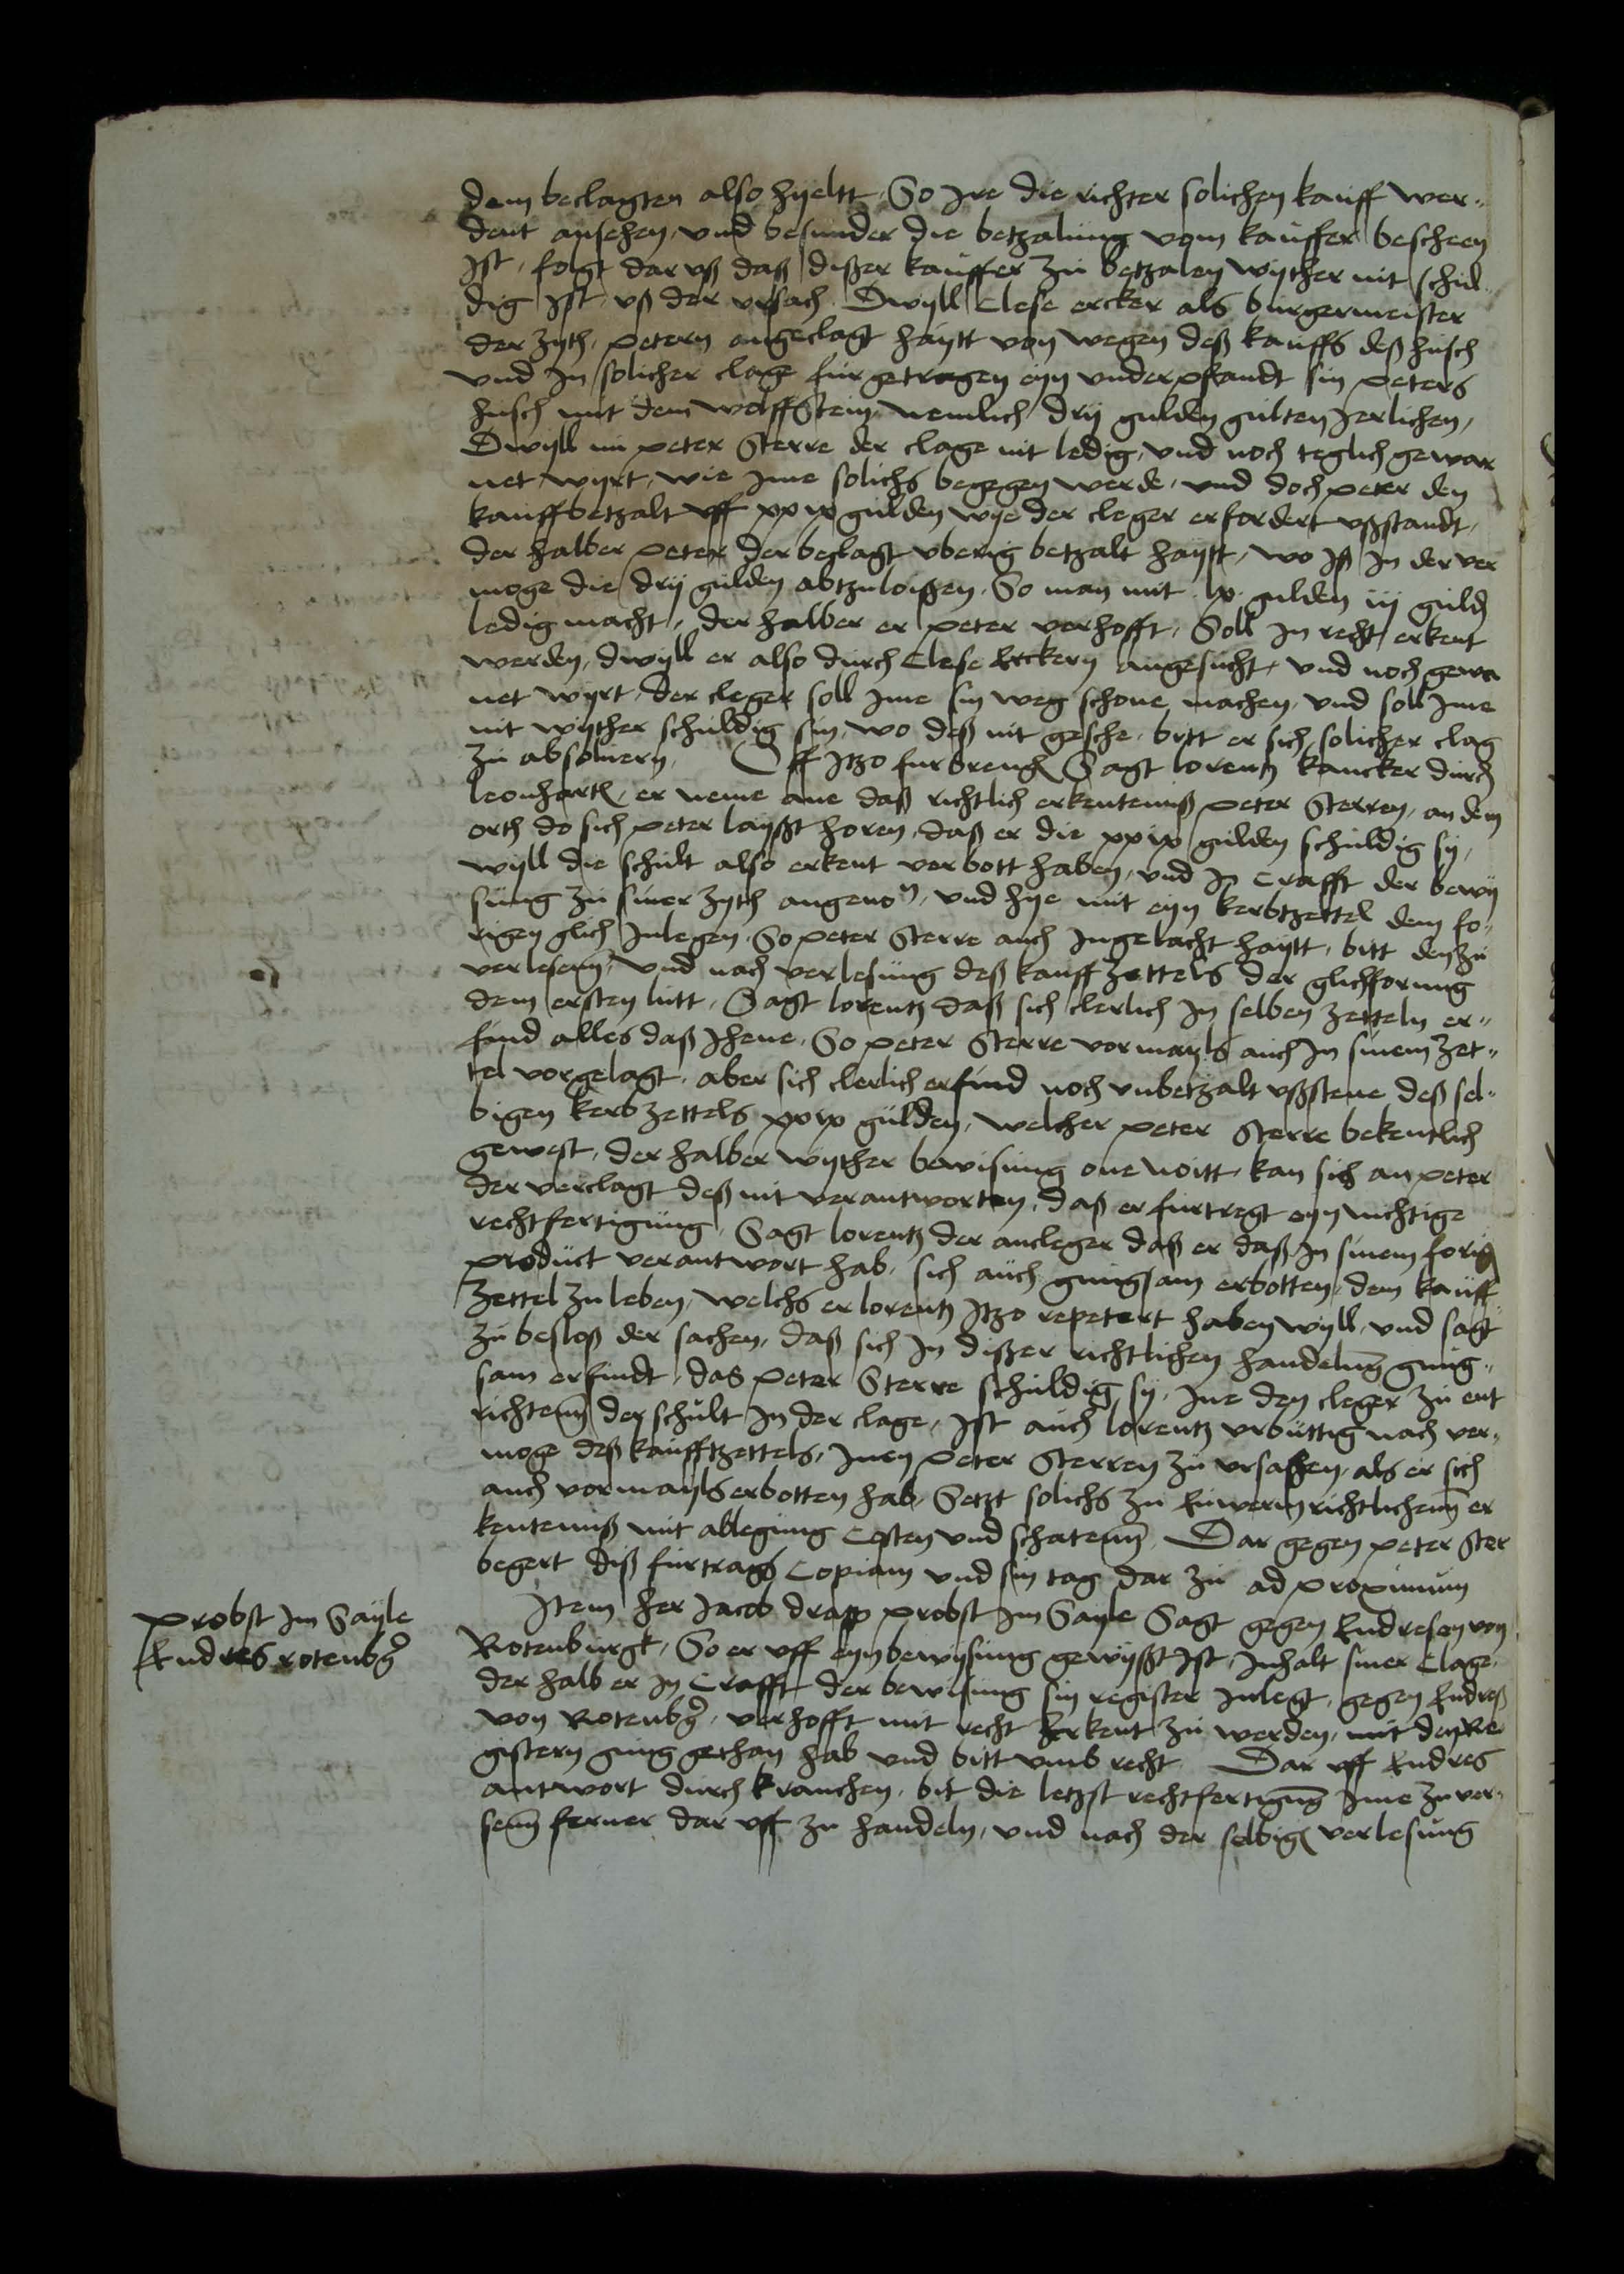 dem beclagten also hyeltt, So Ire die richter solichen kauff wer-
dent ansehen, und besunder die betzalung vom kauffer bescheen
Ist, folgt dar uß daß dißer kauffer zu betzalen wyther nit schul
dig Ist, uß der ursach. Dwyll Clese ercker als burgermeister
der zyth, petern angeclagt haytt von wegen deß kauffs deß husch
und In solicher clage fur getragen eyn underpfandt sin peters
husch mit dem wolffstein, nemlich dry gulden gulten Jerlichen,
Dwyll nu peter Sterre der clage nit ledig, und noch teglich gewar
net wyrt, wie Ime solichs begegen werde, und doch peter den
kauff betzalt uff xxix gulden wye der cleger erfordert ußstandt,
der halber peter der beclagt uberig betzalt haytt, wo Iß In der ver
moge die dry gulden abtzuloißen, So man mit lx gulden iij guld
ledig macht, der halber er peter verhofft, Soll In recht erkent
werden, dwyll er also durch Clese Erckern angesucht, und noch gewa
net wyrt, der cleger soll Ime sin weg schone machen, und soll Ime
nit wyther schuldig sin, wo deß nit gesche, bitt er sich solicher clag
zu absoluern, Uff Itzo furbreng Sagt lorentz kancker durch
leonhart, er neme ane daß richtlich erkenteniß peter Sterren, an dem
orth do sich peter layßt horen, daß er die xxix gulden schuldig sy,
wyll die schult also erkent verbott haben, und In Crafft der bewy
sung zu siner zyth angenom, und hye mit eyn kerbtzettel dem fo-
rigen glich Inlegen, So peter Sterre auch Ingelacht haytt, bitt den zu
verlesenn, und nach verlesung deß kauff zettels der glichforung
dem ersten lutt, Sagt lorentz daß sich clerlich In selben zetteln er-
fund alles daß Jhene, So peter Sterre vormayls auch In sinem zet-
tel vorgelagt, aber sich clerlich erfind noch unbetzalt ußstene deß sel-
bigen kerb zettels xxix gulden, welcher peter Sterre bekentlich
gewest, der halber wyther bewisung one noitt, kan sich an peter
der verclagt deß nit verantworten, daß er furtregt eyn nichtige
rechtfertigung, Sagt lorentz der ancleger daß er daß In sinem forig
product verantwort hab, sich auch gnugsam erbotten, dem kauff
zettel zu leben, welchs er lorentz Itzo repetert haben wyll, und sagt
zu besloß der sachen, daß sich In dißer richtlichen handelung gnug-
sam erfindt, das peter Sterre schuldig sy, Ine den cleger zu ent
richtenn der schult In der clage, Ist auch lorentz urbuttig nach ver-
moge deß kaufftzettels, Inen peter Sterren zu ursaßen, als er sich
auch vormayls erbotten hab, Setzt solichs zu Euwern richtlichenn er
kenteniß mit ablegung Costen und schatenn, Dar gegen peter Ster
begert diß furtrags Copiam und sin tag dar zu ad proximum
probst Im Sayle
Endres rotenbg
Item her Jacob drapp probst Im Sayle Sagt gegen Endresen von
Rotenburgk, So er uff eyn bewysung gewyßt Ist, Inhalt siner Clage,
der halb er In Crafft der bewisung sin register Inlegt, gegen Endreß
von Rotenbg, verhofft mit recht Erkent zu werden, mit den Re
gistern gnug gethan hab und bitt umb recht. Dar uff Endres
antwort durch kranchen, bit die letzst rechtfertigung Ime zu ver-
senn ferner dar uff zu handeln, und nach der selbig verlesung